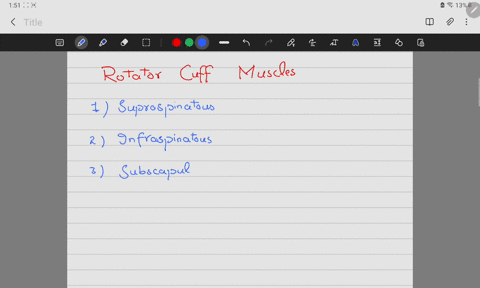 1:51
13%
Title
Rotator Cuff Muscles
1) Suprospinatous
2) Infraspinatous
3) Subscapul